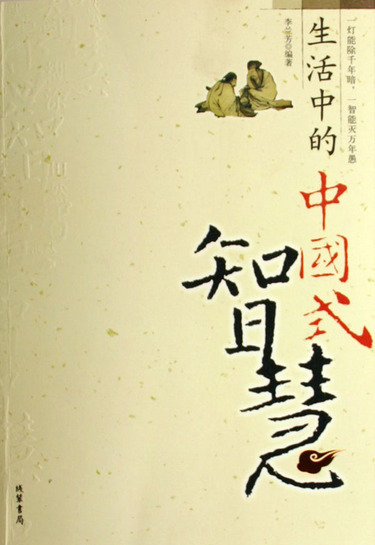 一灯能除千年暗，一智能灭万年愚
生活中的
中國式
智慧
李兰芳◎编著
线装書局